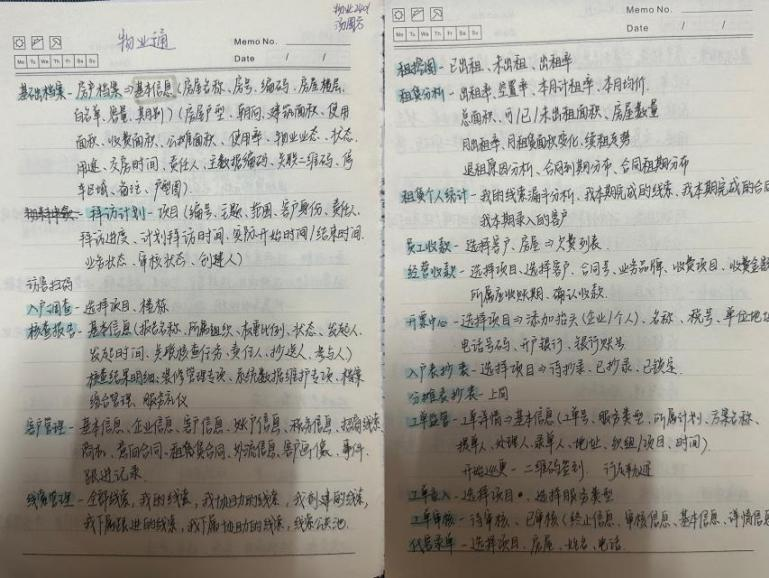 物业2401
汤周方
物业通
Memo No.
Mo Tu We Th Fr Sa Su
Date / /
基础档案 - 房产档案 ⇒ 基本信息(房屋名称、房号、编码、房屋楼层、
白名单、房量、其用别)(房屋户型、朝向、建筑面积、使用
面积、收费面积、公摊面积、使用率、物业业态、状态、
用途、交房时间、责任人、主数据编码、关联二维码、停
车区域、备注、户型图)
拜访计划 - 项目(编号、主题、范围、客户身份、责任人、
拜访进度、计划拜访时间、实际开始时间/结束时间
业务状态、审核状态、创建人)
访客扫码
入户调查 - 选择项目、楼栋
核查报告 - 基本信息(报告名称、所属组织、权重比例、状态、发起人、
发起时间、关联核查任务、责任人、抄送人、参与人)
核查结果明细、装修管理专项、系统数据维护专项、档案
综合管理、服务礼仪
客户管理 - 基本信息、企业信息、客户信息、账户信息、税务信息、招商线索
商标、意向合同、租赁合同、物流信息、客户画像、事件、
跟进记录
线索管理 - 全部线索、我的线索、我协助的线索、我创建的线索、
我下属跟进的线索、我下属协助的线索、线索公海池.
Memo No.
Mo Tu We Th Fr Sa Su
Date / /
租控图 - 已出租、未出租、出租率
租赁分析 - 出租率、空置率、本月计租率、本月均价
总面积、可/已/未出租面积、房屋数量
月出租率、月租赁面积变化、续租走势
退租原因分析、合同到期分布、合同租期分布
租赁个人统计 - 我的线索漏斗分析、我本期完成的线索、我本期完成的合同
我本期录入的客户
员工收款 - 选择客户、房屋 ⇒ 欠费列表
经营收款 - 选择项目、选择客户、合同号、业务品牌、收费项目、收费金额
所属应收账期、确认收款.
开票中心 - 选择项目 ⇒ 添加抬头(企业/个人)、名称、税号、单位地址
电话号码、开户银行、银行账号
入户表抄表 - 选择项目 ⇒ 待抄录、已抄录、已锁定.
公摊表抄表 - 上同
工单监管 - 工单详情 ⇒ 基本信息(工单号、服务类型、所属计划、方案名称、
提单人、处理人、录单人、地址、组织/项目、时间)
开始巡更 - 二维码签到 行走轨迹
工单录入 - 选择项目、选择服务类型
工单审核 - 待审核、已审核(终止信息、审核信息、基本信息、详情信息
代客录单 - 选择项目、房屋、姓名、电话.